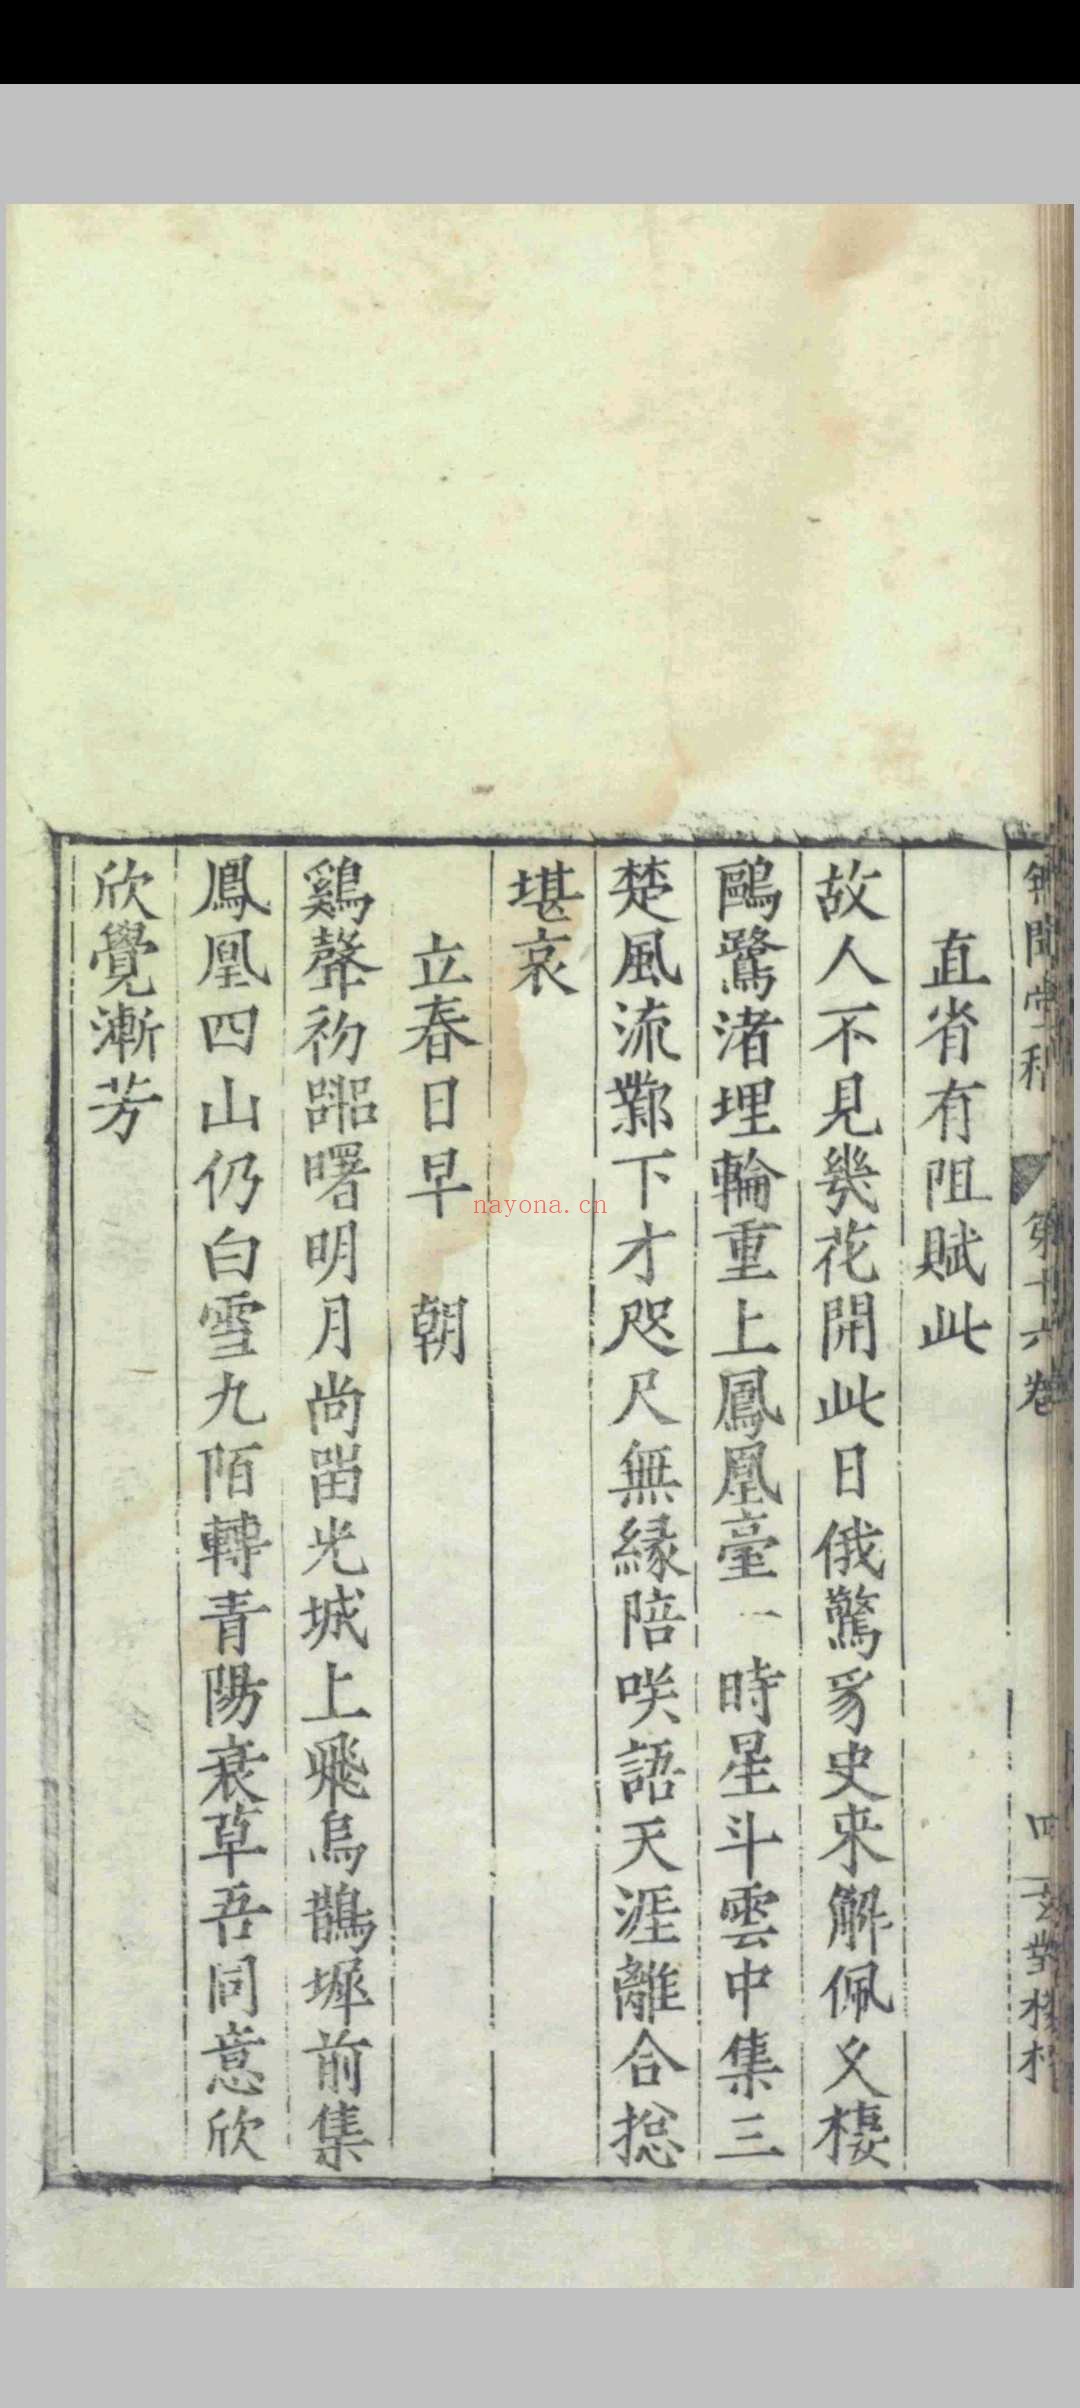 直省有阻賦此
故人不見幾花開此日俄驚豸史來解佩乂棲
鷗鷺渚埋輪重上鳳凰臺一時星斗雲中集三
楚風流鄴下才咫尺無緣陪咲語天涯離合捴
堪哀
立春日早朝
鷄聲初曙明月尚畱光城上飛烏鵲墀前集
鳳凰四山仍白雪九陌轉青陽衰草吾同意欣
欣覺漸芳
第十六卷
四
nayona.cn